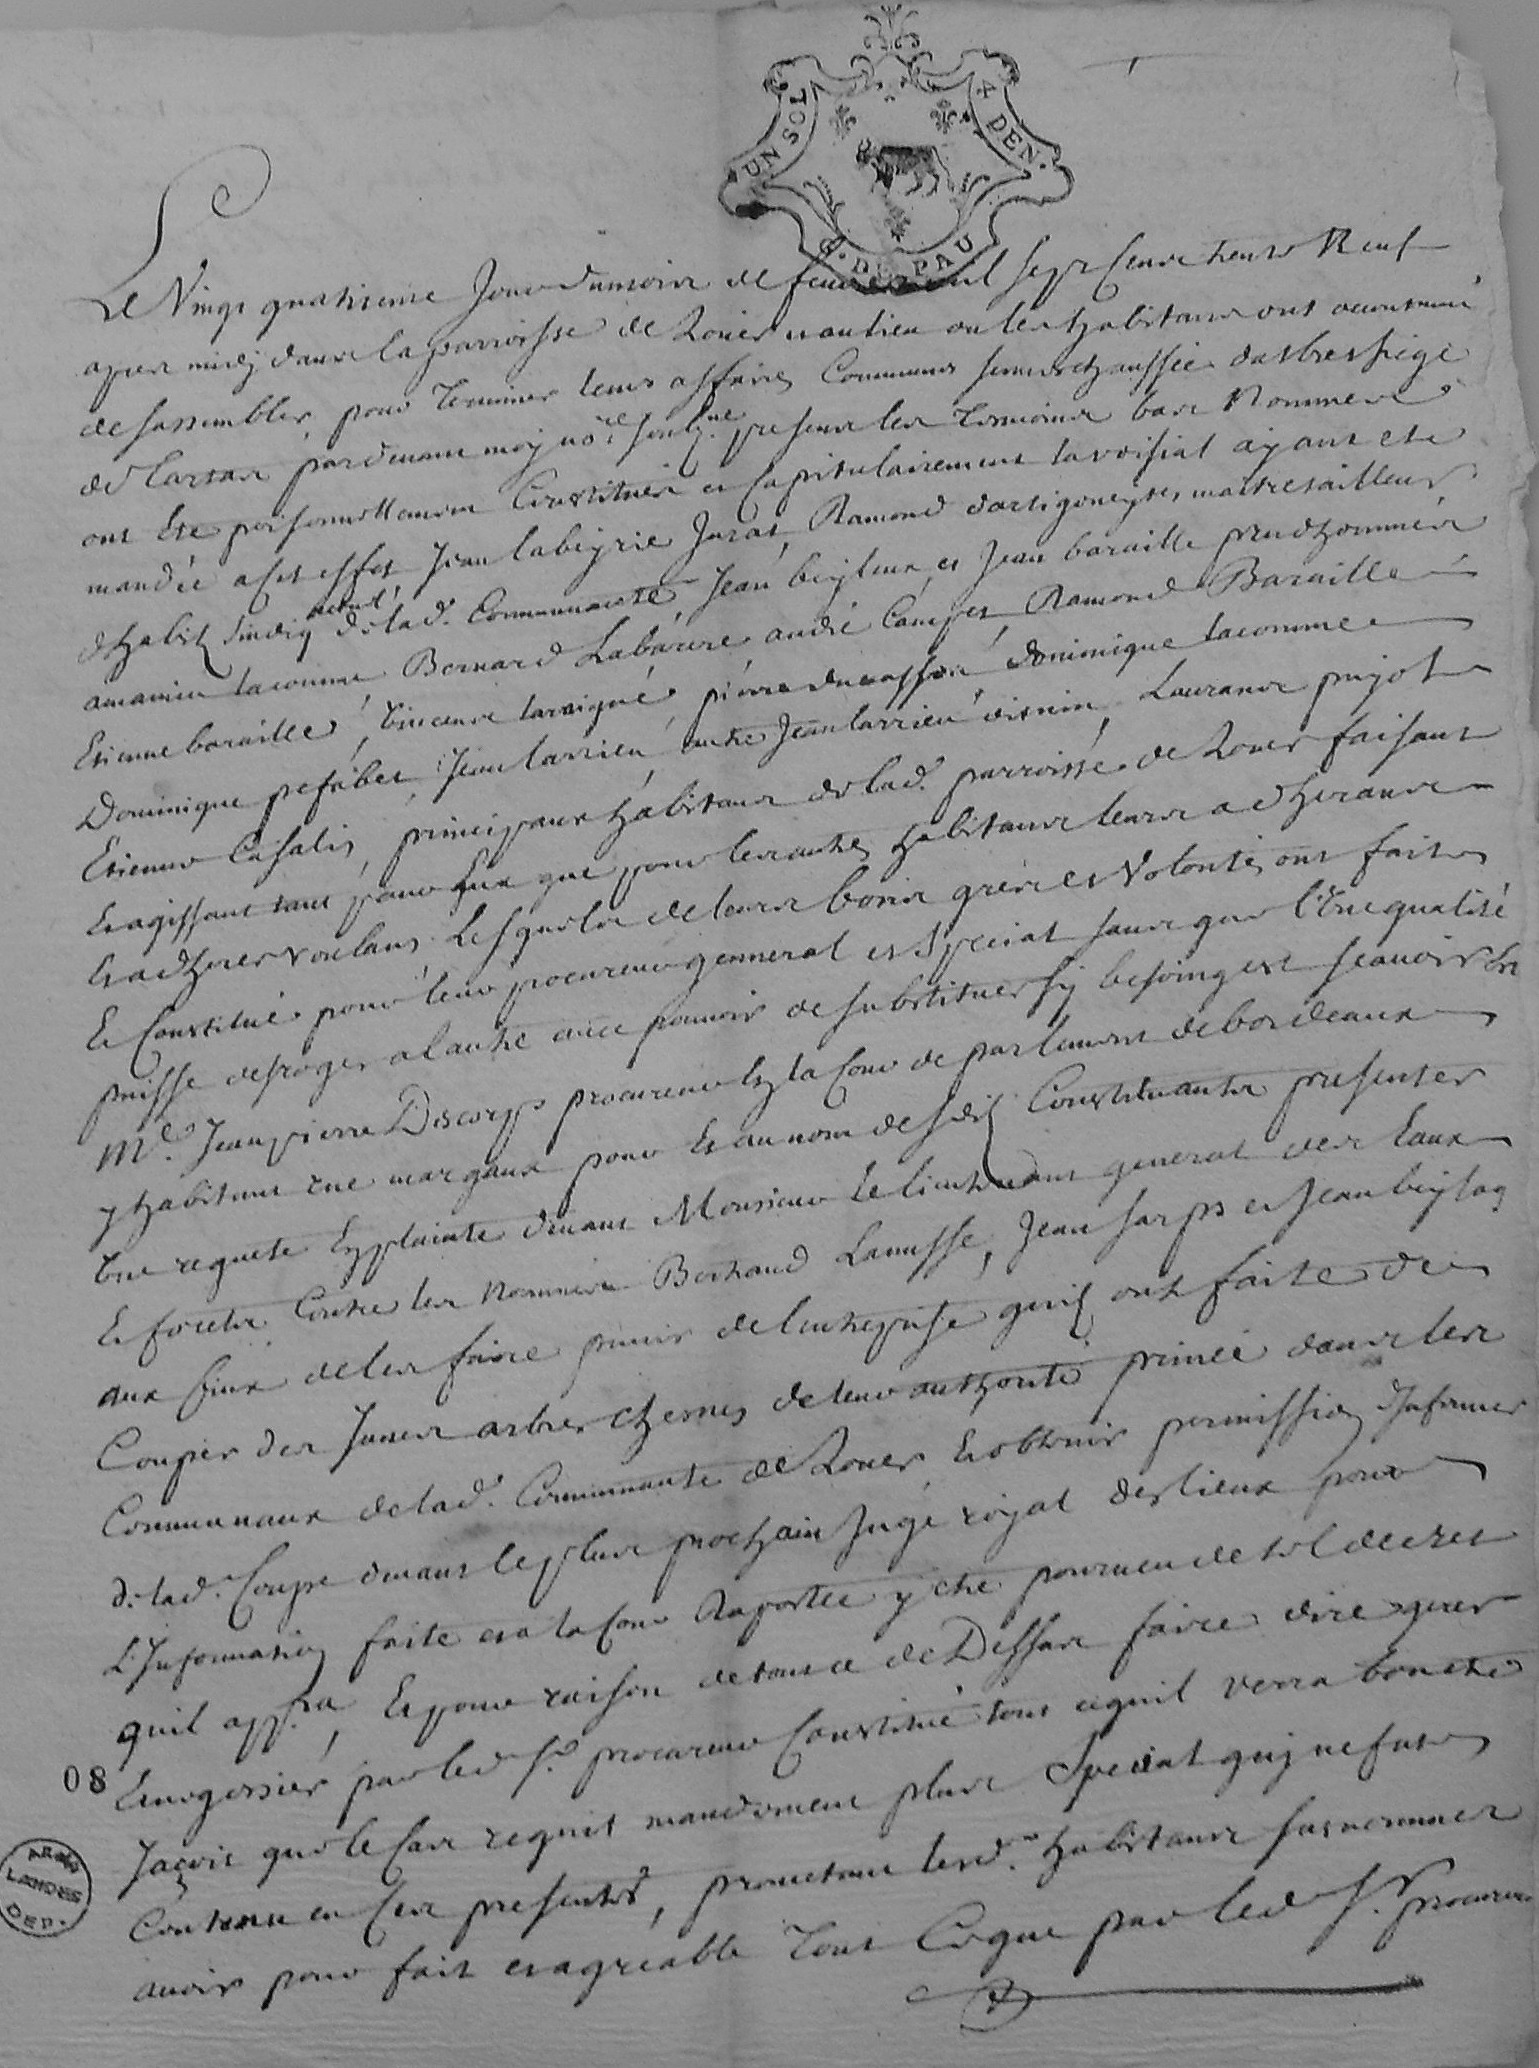 UN SOL 4 DEN.
G. DE PAU
Le Vingt quatrieme Jour du mois de feuvrier mil sept Cens trente Neuf
apres midy dans la parroisse de Louer au lieu ou les habitans ont accoutumé
de sassembler pour terminer leurs affaires Communes senerchaussée dasbresfiege
de Tartas pardevant moy nore. sousne. presens les temoins bas Nommes
ont Eté personnellement Constitués et Capitulairement la voisiat ayant ete
mandée a cet effet Jean labeyrie Jurat, Ramond dartigoueyte, maitre tailleur
dhabitz sindiq actuel de lad. Communauté Jean beyleux et Jean baraille prudhommes
amanieu lacomme Bernard Labarere andré Campet Ramond Baraille
Etienne baraille, Vincens lavigne, pierre ducasse dominique lacomme
Dominique pefabet Jean larrieu autre Jean larrieu, Laurans pujol
Etienne Casalis, principaux habitans de lad. parroisse de Louer faisant
et agissant tant pour Eux que pour les autres habitans leurs adherans
et adherer voulans Lesquels de leurs bons grés et Volontés ont fait
et Constitué pour leur procureur genneral et special sans que l'Une qualité
puisse desroger a l'autre avec pouvoir de substituer sy besoing est scavoir est
Me. Jean pierre Descorps procureur ez la Cour de parlement de bordeaux
y habitant rue margaux pour et au nom desdz Constituants presenter
Une requete Explainte devant Monsieur le lieutenant general des Eaux
et forets Contre les nommés Bertrand Lanusse, Jean sarps et Jean beylaq
aux fins de les faire punir de l'entreprise quilz ont faite de
Couper des Junes arbres chesnes de leur authorité privée dans les
Communaux de lad. Communauté de Louer et obtenir permission dinformer
de lad. Coupe devant le plus prochain Juge royal des lieux pour
L'Information faite et a la Cour Raportée y etre pourveu de tel decret
quil appra. Et pour raison de tout ce de Dessus faire dire gerer
et negossier par led. Sr. procureur Constitué tout ce quil verra bon etre
Jaçois que le Cas requit mandement plus special quy ne fut
Contenu en Ces presentes, prometant lesd. habitans
avoir pour fait et agreable tout Ce que par led. Sr. procureur
08
ARCH.
LANDES
DEP.